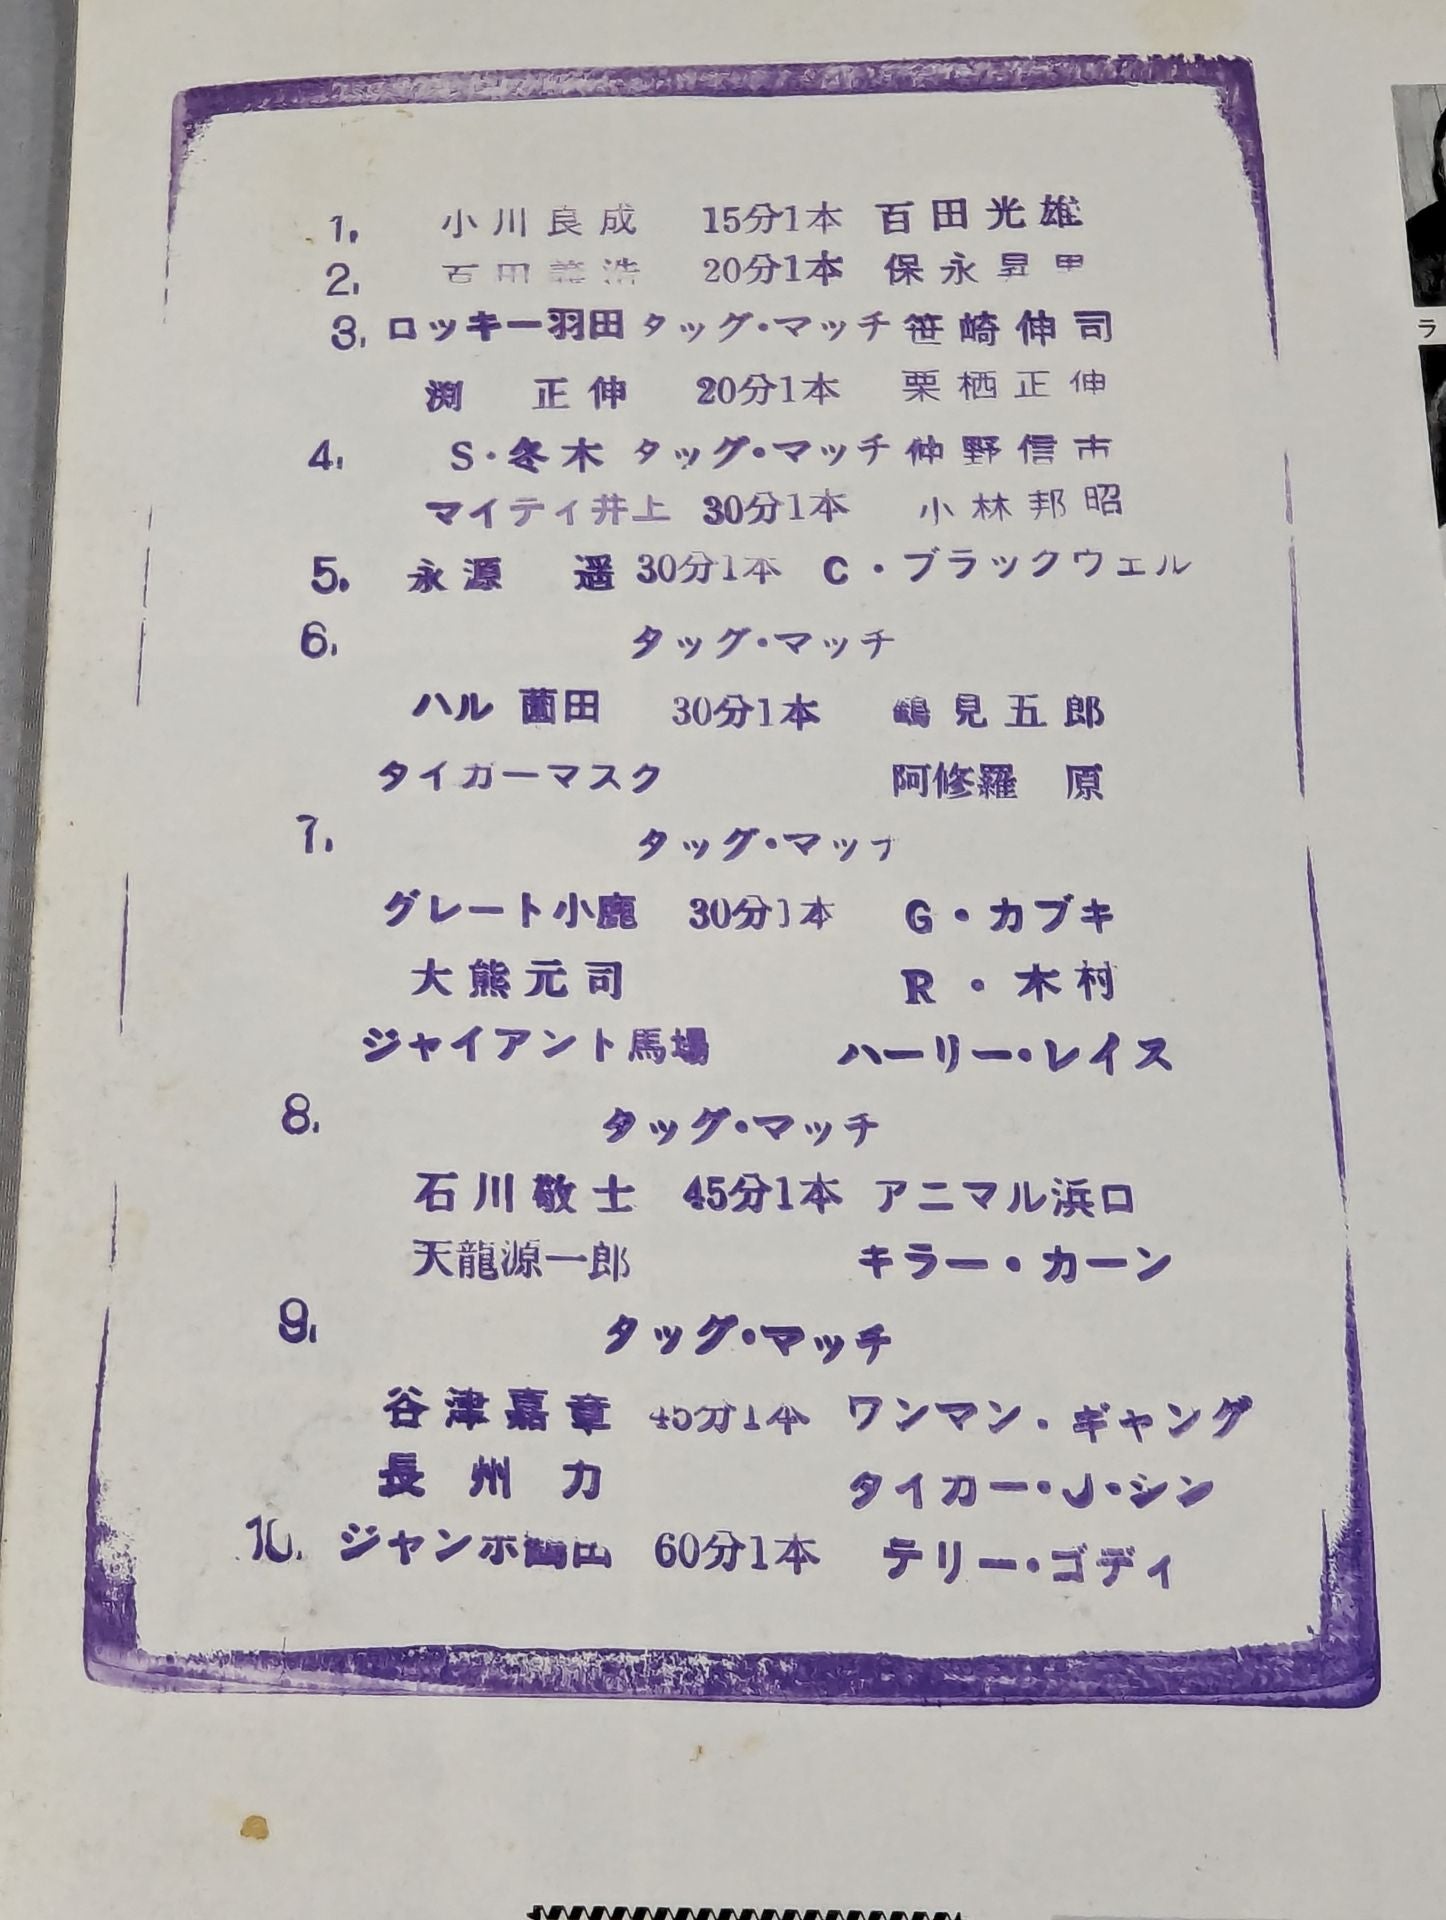 1. 小川良成 15分1本 百田光雄
2. 百田義浩 20分1本 保永昇男
3. ロッキー羽田 タッグ・マッチ 笹崎伸司
渕 正伸 20分1本 栗栖正伸
4. S・冬木 タッグ・マッチ 仲野信市
マイティ井上 30分1本 小林邦昭
5. 永源 遥 30分1本 C・ブラックウェル
6. タッグ・マッチ
ハル薗田 30分1本 鶴見五郎
タイガーマスク 阿修羅 原
7. タッグ・マッチ
グレート小鹿 30分1本 G・カブキ
大熊元司 R・木村
ジャイアント馬場 ハーリー・レイス
8. タッグ・マッチ
石川敬士 45分1本 アニマル浜口
天龍源一郎 キラー・カーン
9. タッグ・マッチ
谷津嘉章 45分1本 ワンマン・ギャング
長州 力 タイガー・J・シン
10. ジャンボ鶴田 60分1本 テリー・ゴディ
ラ